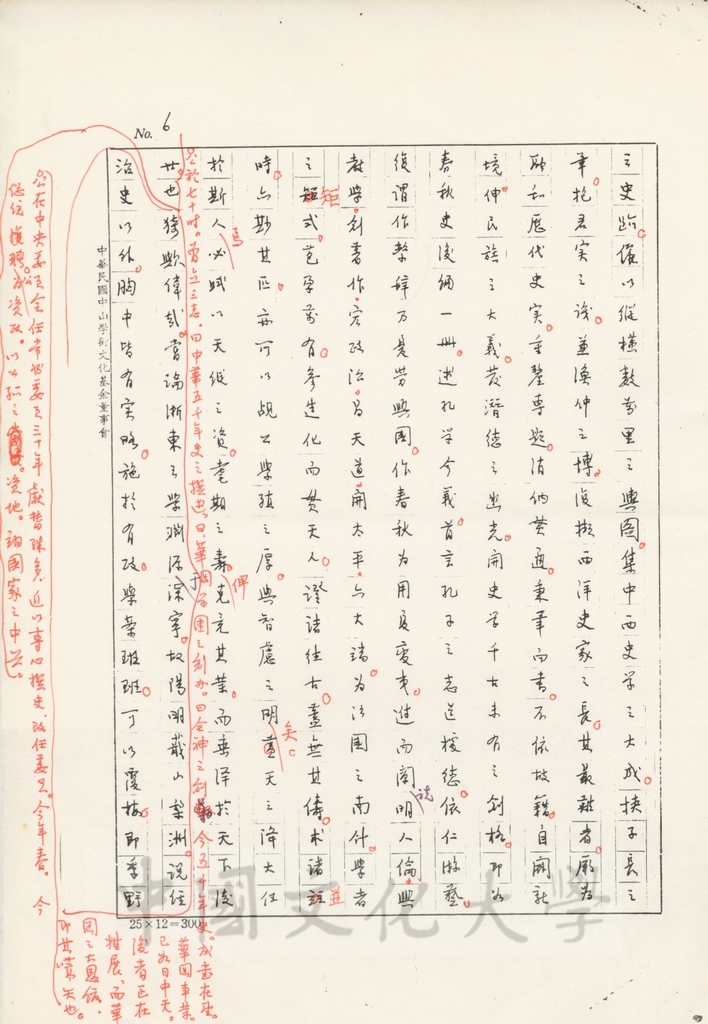 No. 6
之史蹟。儻以縱橫數萬里之輿圖。集中西史學之大成。挾子長之
筆。抱君實之識。兼漁仲之博。復擬西洋史家之長。其最難者。厥為
融和歷代史實。重釐專題。消納貫通。秉筆而書。不依故籍。自闢新
境。伸民族之大義。發潛德之幽光。開史學千古未有之創格。即以
春秋史後編一冊。述孔學今義。首言孔子之志道據德。依仁游藝。
復謂作繫辭乃是勞與國。作春秋為用夏變夷。進而闡明人倫。興
教學。創書作。究政治。昌天道。開太平。六大端。為治國之南針。學者
之矩式。苞孕萬有。參造化而貫天人。證諸往古。盡無其儔。求諸註
時。亦尠其匹。亦可以覘公學殖之厚。與智慮之明矣。蓋天之降大任
於斯人。必賦以天縱之資。耄期之壽。克竟其業。而垂澤於天下後
世也。猗歟偉哉。嘗論浙東之學淵源深寧。故陽明蕺山梨洲。說經
治史以外。胸中皆有實略。施於有政。學業班班。可以覆按。即季野
矩
並
焉
俾
矣。
說
于
公於七十時。曾立三志。曰中華五千年史之撰述。曰華岡學園之創辦。曰合神之創
今五千年史。成書在望。
華岡事業。
已如日中天。
後者正在
推展。而華
岡之大恩信。
即其嚆矢也。
公在中央委員會任常務委員三十年。獻替殊多。近以專心撰史。改任委員。今年春。今
總統復聘為資政。以公孤之資地。翊國家之中興。
中華民國中山學術文化基金董事會
25×12=300
中國文化大學